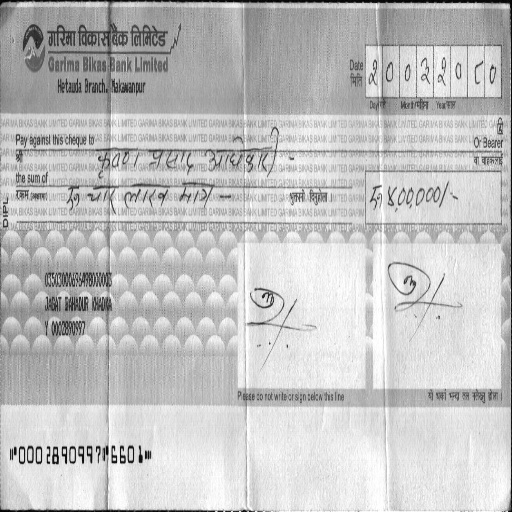 गरिमा विकास बैंक लिमिटेड
Garima Bikas Bank Limited
Hetauda Branch, Makawanpur
Date
मिति
२००३२०८०
Day/गते Month/महिना Year/साल
Pay against this cheque to
श्री
कृष्ण प्रसाद अधिकारी -
Or Bearer
वा वाहकलाई
the sum of
रकम (अक्षरमा)
रु चार लाख मात्र -
रु ४,००,०००/-
DIPL
03503000696498000003
JAGAT BAHADUR KHADKA
Y 0002890997
Please do not write or sign below this line
⑈0002890997⑈6601⑈